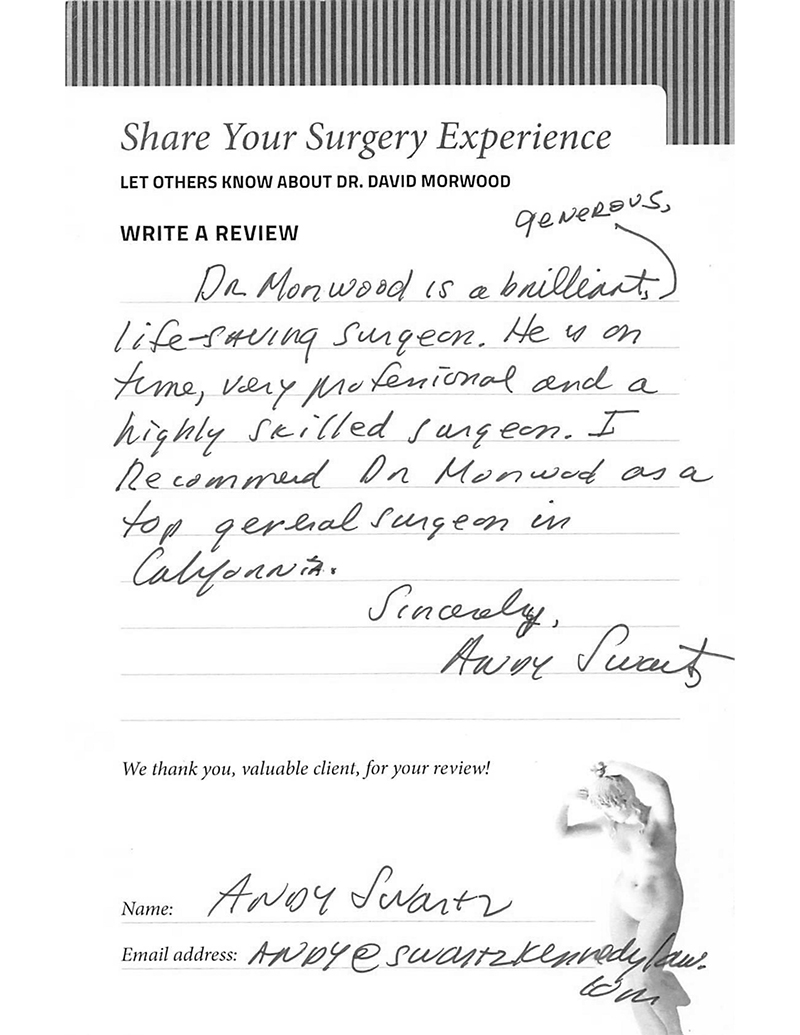 Share Your Surgery Experience
LET OTHERS KNOW ABOUT DR. DAVID MORWOOD
WRITE A REVIEW
generous,
Dr Morwood is a brilliant,
life-saving surgeon. He is on
time, very professional and a
highly skilled surgeon. I
Recommend Dr Morwood as a
top general surgeon in
California.
Sincerely,
Andy Swartz
We thank you, valuable client, for your review!
Name: ANDY Swartz
Email address: ANDY@swartzkennedylaw.
com